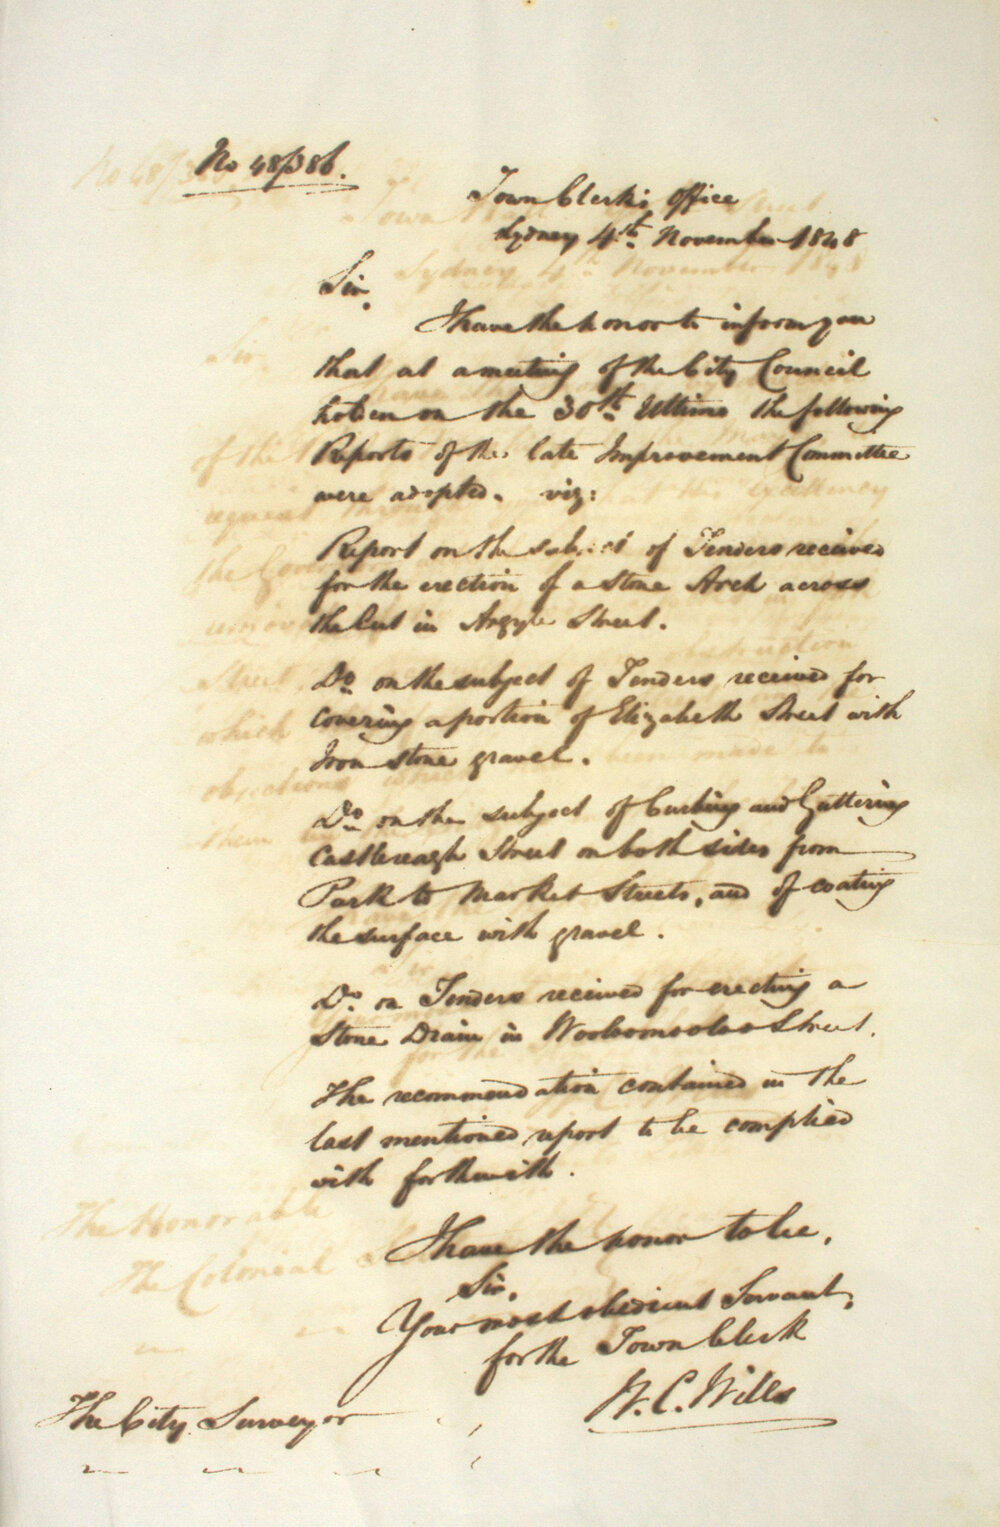 No 48/386.
Town Clerk's Office
Sydney 4th November 1848
Sir,
I have the honor to inform you
that at a meeting of the City Council
holden on the 30th Ultimo the following
Reports of the late Improvement Committee
were adopted. viz:
Report on the subject of Tenders received
for the erection of a Stone Arch across
the Cut in Argyle Street.
Do on the subject of Tenders received for
covering a portion of Elizabeth Street with
Iron stone gravel.
Do on the subject of Curbing and Guttering
Castlereagh Street on both sides from
Park to Market Streets, and of coating
the surface with gravel.
Do on Tenders received for erecting a
Stone Drain in Woolloomooloo Street.
The recommendation contained in the
last mentioned report to be complied
with forthwith.
I have the honor to be,
Sir,
Your most obedient Servant,
for the Town Clerk
W. C. Wills
The City Surveyor